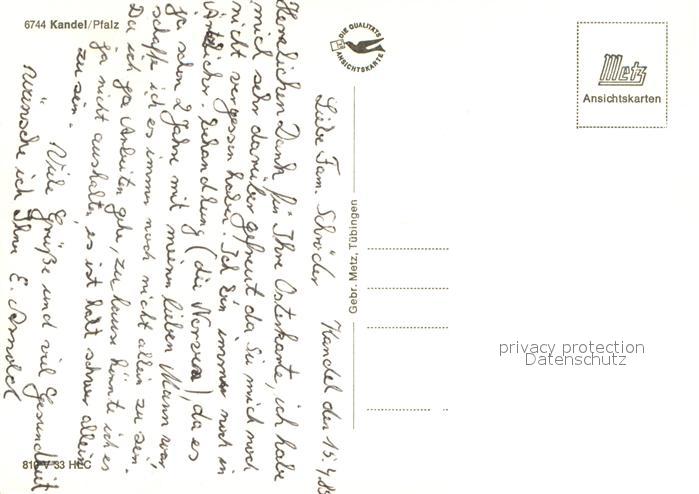 6744 Kandel/Pfalz
DIE QUALITÄTS
ANSICHTSKARTE
Metz
Ansichtskarten
Gebr. Metz, Tübingen
privacy protection
Datenschutz
Kandel den 15.4.
Liebe Fam. Schröder
Herzlichen Dank für Ihre Osterkarte, ich habe
mich sehr darüber gefreut da Sie mich noch
nicht vergessen haben. Ich bin immer noch in
ärztlicher Behandlung (die Nerven), da es
ja schon 2 Jahre mit meinem lieben Mann war
schaffe ich es immer noch nicht allein zu sein.
Da ich ja Arbeiten gehe, zu hause könnte ich es
ja nicht aushalten, es ist halt schwer allein
zu sein.
Viele Grüße und viel Gesundheit
wünscht ich Ihnen E. Arnold
33 HEC